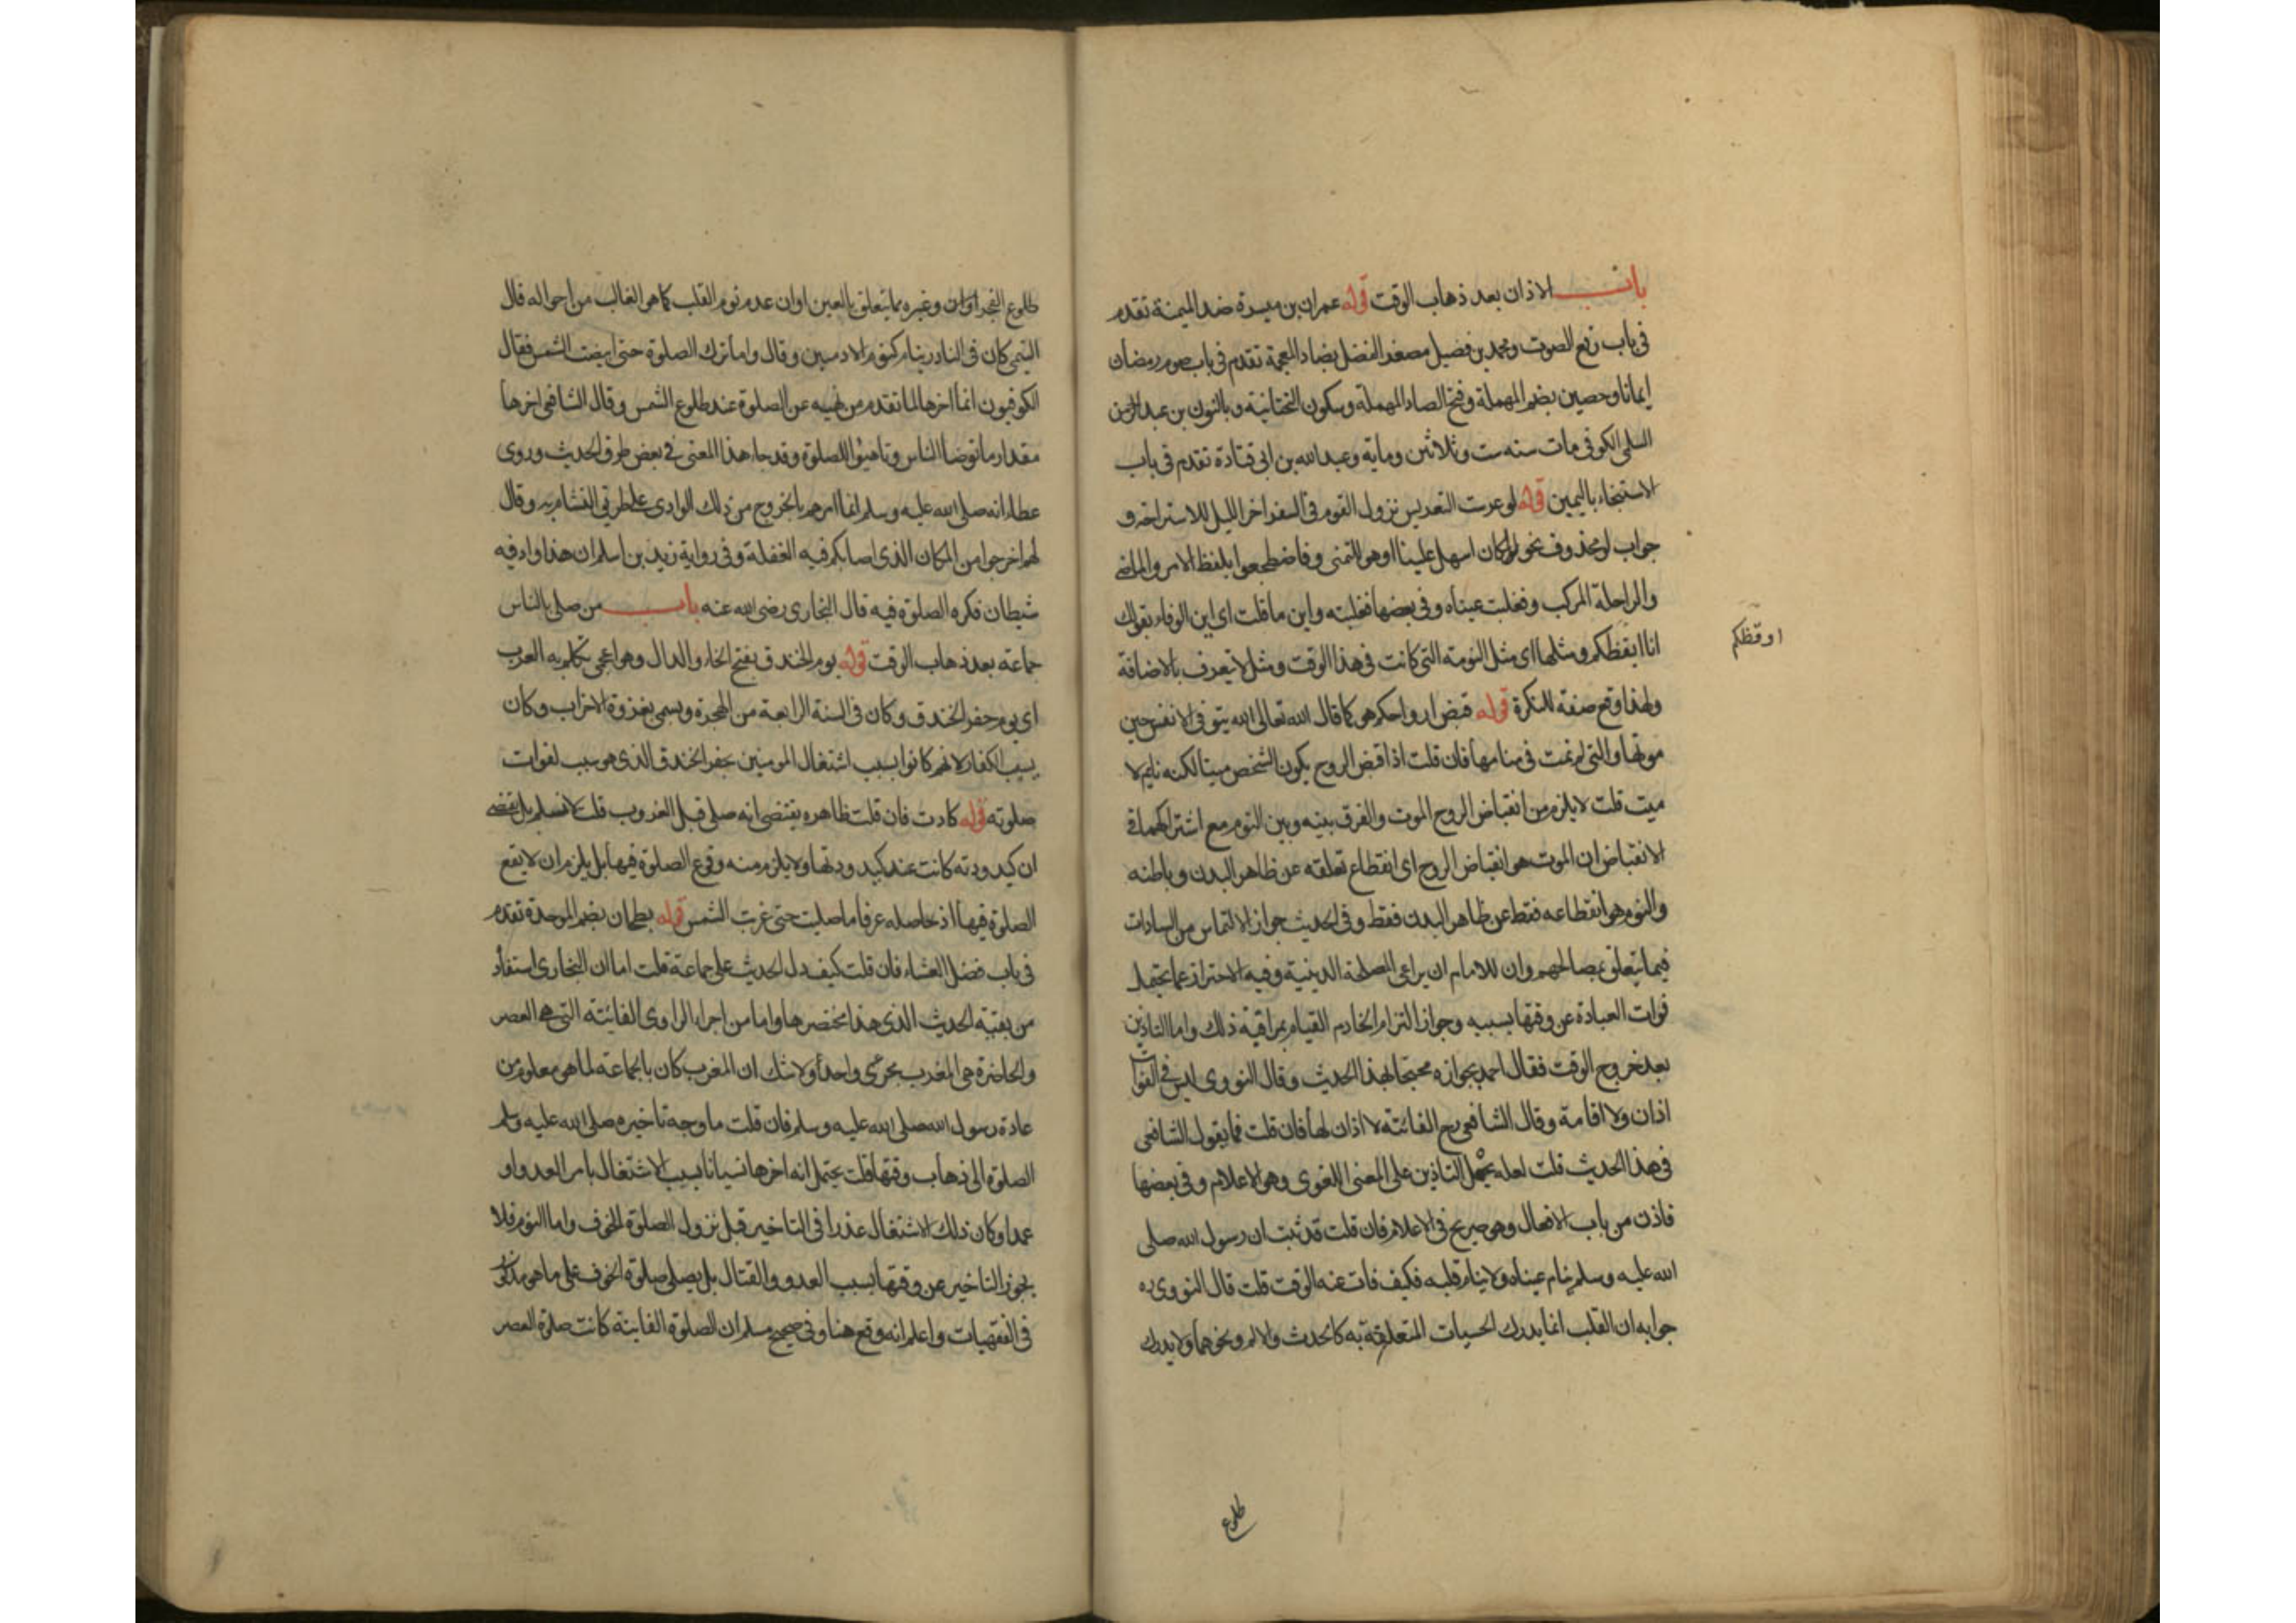 باب الاذان بعد ذهاب الوقت قوله عمران بن ميسرة ضد الميمنة تقدم
في باب رفع الصوت ومحمد بن فضيل مصغر الفضل بضاد المعجمة تقدم في باب صوم رمضان
ايمانا وحصين بضم المهملة وفتح الصاد المهملة وسكون التحتانية وبالنون بن عبد الرحمن
السلمي الكوفي مات سنه ست وثلاثين وماية وعبد الله بن ابي قتادة تقدم في باب
الاستنجاء باليمين قوله لو عرست التعريس نزول القوم في السفر اخر الليل للاستراحة و
جواب لو محذوف نحو لكان اسهل علينا او هو للتمني وفاضطجعوا بلفظ الامر والماضي
والراحلة المركب وفغلبت عيناه وفي بعضها فغلبته واين ما قلت اي اين الوفاء بقولك
انا ايقظكم ومثلها اي مثل النومة التي كانت في هذا الوقت ومثل لا يعرف بالاضافة
اوقظكم
ولهذا وقع صفة للنكرة قوله قبض ارواحكم هو كما قال الله تعالى الله يتوفى الانفس حين
موتها والتي لم تمت في منامها فان قلت اذا قبض الروح يكون الشخص ميتا لكنه نايم لا
ميت قلت لا يلزم من انقباض الروح الموت والفرق بينه وبين النوم مع اشتراكهما في
الانقباض ان الموت هو انقباض الروح اي انقطاع تعلقه عن ظاهر البدن وباطنه
والنوم هو انقطاعه فقط عن ظاهر البدن فقط وفي الحديث جواز الالتماس من السادات
فيما يتعلق بمصالحهم وان للامام ان يراعي المصلحة الدينية وفيه الاحتراز عما يحتمل
فوات العبادة عن وقتها بسببه وجواز التزام الخادم القيام بمراقبة ذلك واما التاذين
بعد خروج الوقت فقال احمد بجوازه محتجا بهذا الحديث وقال النووي ليس في الفوائت
اذان ولا اقامة وقال الشافعي رح الفائتة لا اذان لها فان قلت فما يقول الشافعي
في هذا الحديث قلت لعله يحمل التاذين على المعنى اللغوي وهو الاعلام وفي بعضها
فاذن من باب الافعال وهو صريح في الاعلام فان قلت قد ثبت ان رسول الله صلى
الله عليه وسلم ينام عيناه ولا ينام قلبه فكيف فات عنه الوقت قلت قال النووي ره
جوابه ان القلب انما يدرك الحسيات المتعلقة به كالحدث والالم ونحوهما ولا يدرك
طلوع
طلوع الفجر اوان وغيره مما يتعلق بالعين اوان عدم نوم القلب كما هو الغالب من احواله قال
التيمي كان في النادر ينام كنوم الادميين وقال واما ترك الصلوة حتى ابيضت الشمس فقال
الكوفيون انما اخرها لما تقدم من نهيه عن الصلوة عند طلوع الشمس وقال الشافعي اخرها
مقدار ما توضا الناس وتاهبوا للصلوة وقد جاء هذا المعنى في بعض طرق الحديث وروى
عطاء انه صلى الله عليه وسلم انما امرهم بالخروج من ذلك الوادي على طريق التشام به وقال
لهم اخرجوا من المكان الذي اصابكم فيه الغفلة وفي رواية زيد بن اسلم ان هذا واد فيه
شيطان فكره الصلوة فيه قال البخاري رضى الله عنه باب من صلى بالناس
جماعة بعد ذهاب الوقت قوله يوم الخندق بفتح الخاء والدال وهو اعجمي تكلم به العرب
اي يوم حفر الخندق وكان في السنة الرابعة من الهجرة ويسمى بغزوة الاحزاب وكان
يسب الكفار لانهم كانوا بسبب اشتغال المومنين بحفر الخندق الذي هو سبب لفوات
صلوته قوله كادت فان قلت ظاهره يقتضي انه صلى قبل الغروب قلت لا نسلم بل يقتضي
ان كيدودته كانت عند كيدودتها ولا يلزم منه وقوع الصلوة فيها بل يلزم ان لا يقع
الصلوة فيها اذ حاصله عرفا ما صليت حتى غربت الشمس قوله بطحان بضم الموحدة تقدم
في باب فضل العشاء فان قلت كيف دل الحديث على جماعة قلت اما ان البخاري استفاد
من بقية الحديث الذي هذا مختصرها واما من اجراء الراوي الفائتة التي هي العصر
والحاضرة هي المغرب مجرى واحدا ولا شك ان المغرب كان بالجماعة لما هو معلوم من
عادة رسول الله صلى الله عليه وسلم فان قلت ما وجه تاخيره صلى الله عليه وسلم
الصلوة الى ذهاب وقتها قلت يحتمل انه اخرها نسيانا بسبب الاشتغال بامر العدو او
عمدا وكان ذلك الاشتغال عذرا في التاخير قبل نزول الصلوة الخوف واما النوم فلا
يجوز التاخير عن وقتها بسبب العدو والقتال بل يصلى صلوة الخوف على ما هو مذكور
في الفقهيات واعلم انه وقع هنا وفي صحيح مسلم ان الصلوة الفاينة كانت صلوة العصر